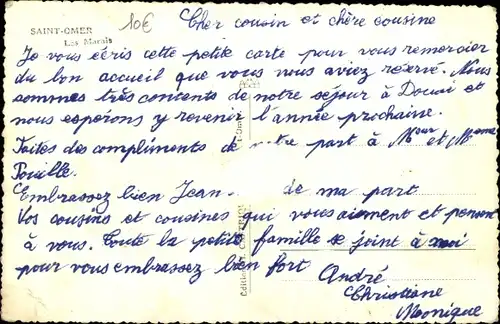 Cher cousin et chère cousine
SAINT-OMER
Les Marais
10€
Je vous écris cette petite carte pour vous remercier
du bon accueil que vous nous aviez réservé. Nous
sommes très contents de notre séjour à Douai et
nous espérons y revenir l'année prochaine.
Faites des compliments de notre part à Meur et Mame
Pouille.
Embrassez bien Jean. de ma part
Vos cousins et cousines qui vous aiment et pensent
à vous. Toute la petite famille se joint à moi
pour vous embrassez bien fort
André
Christiane
Monique